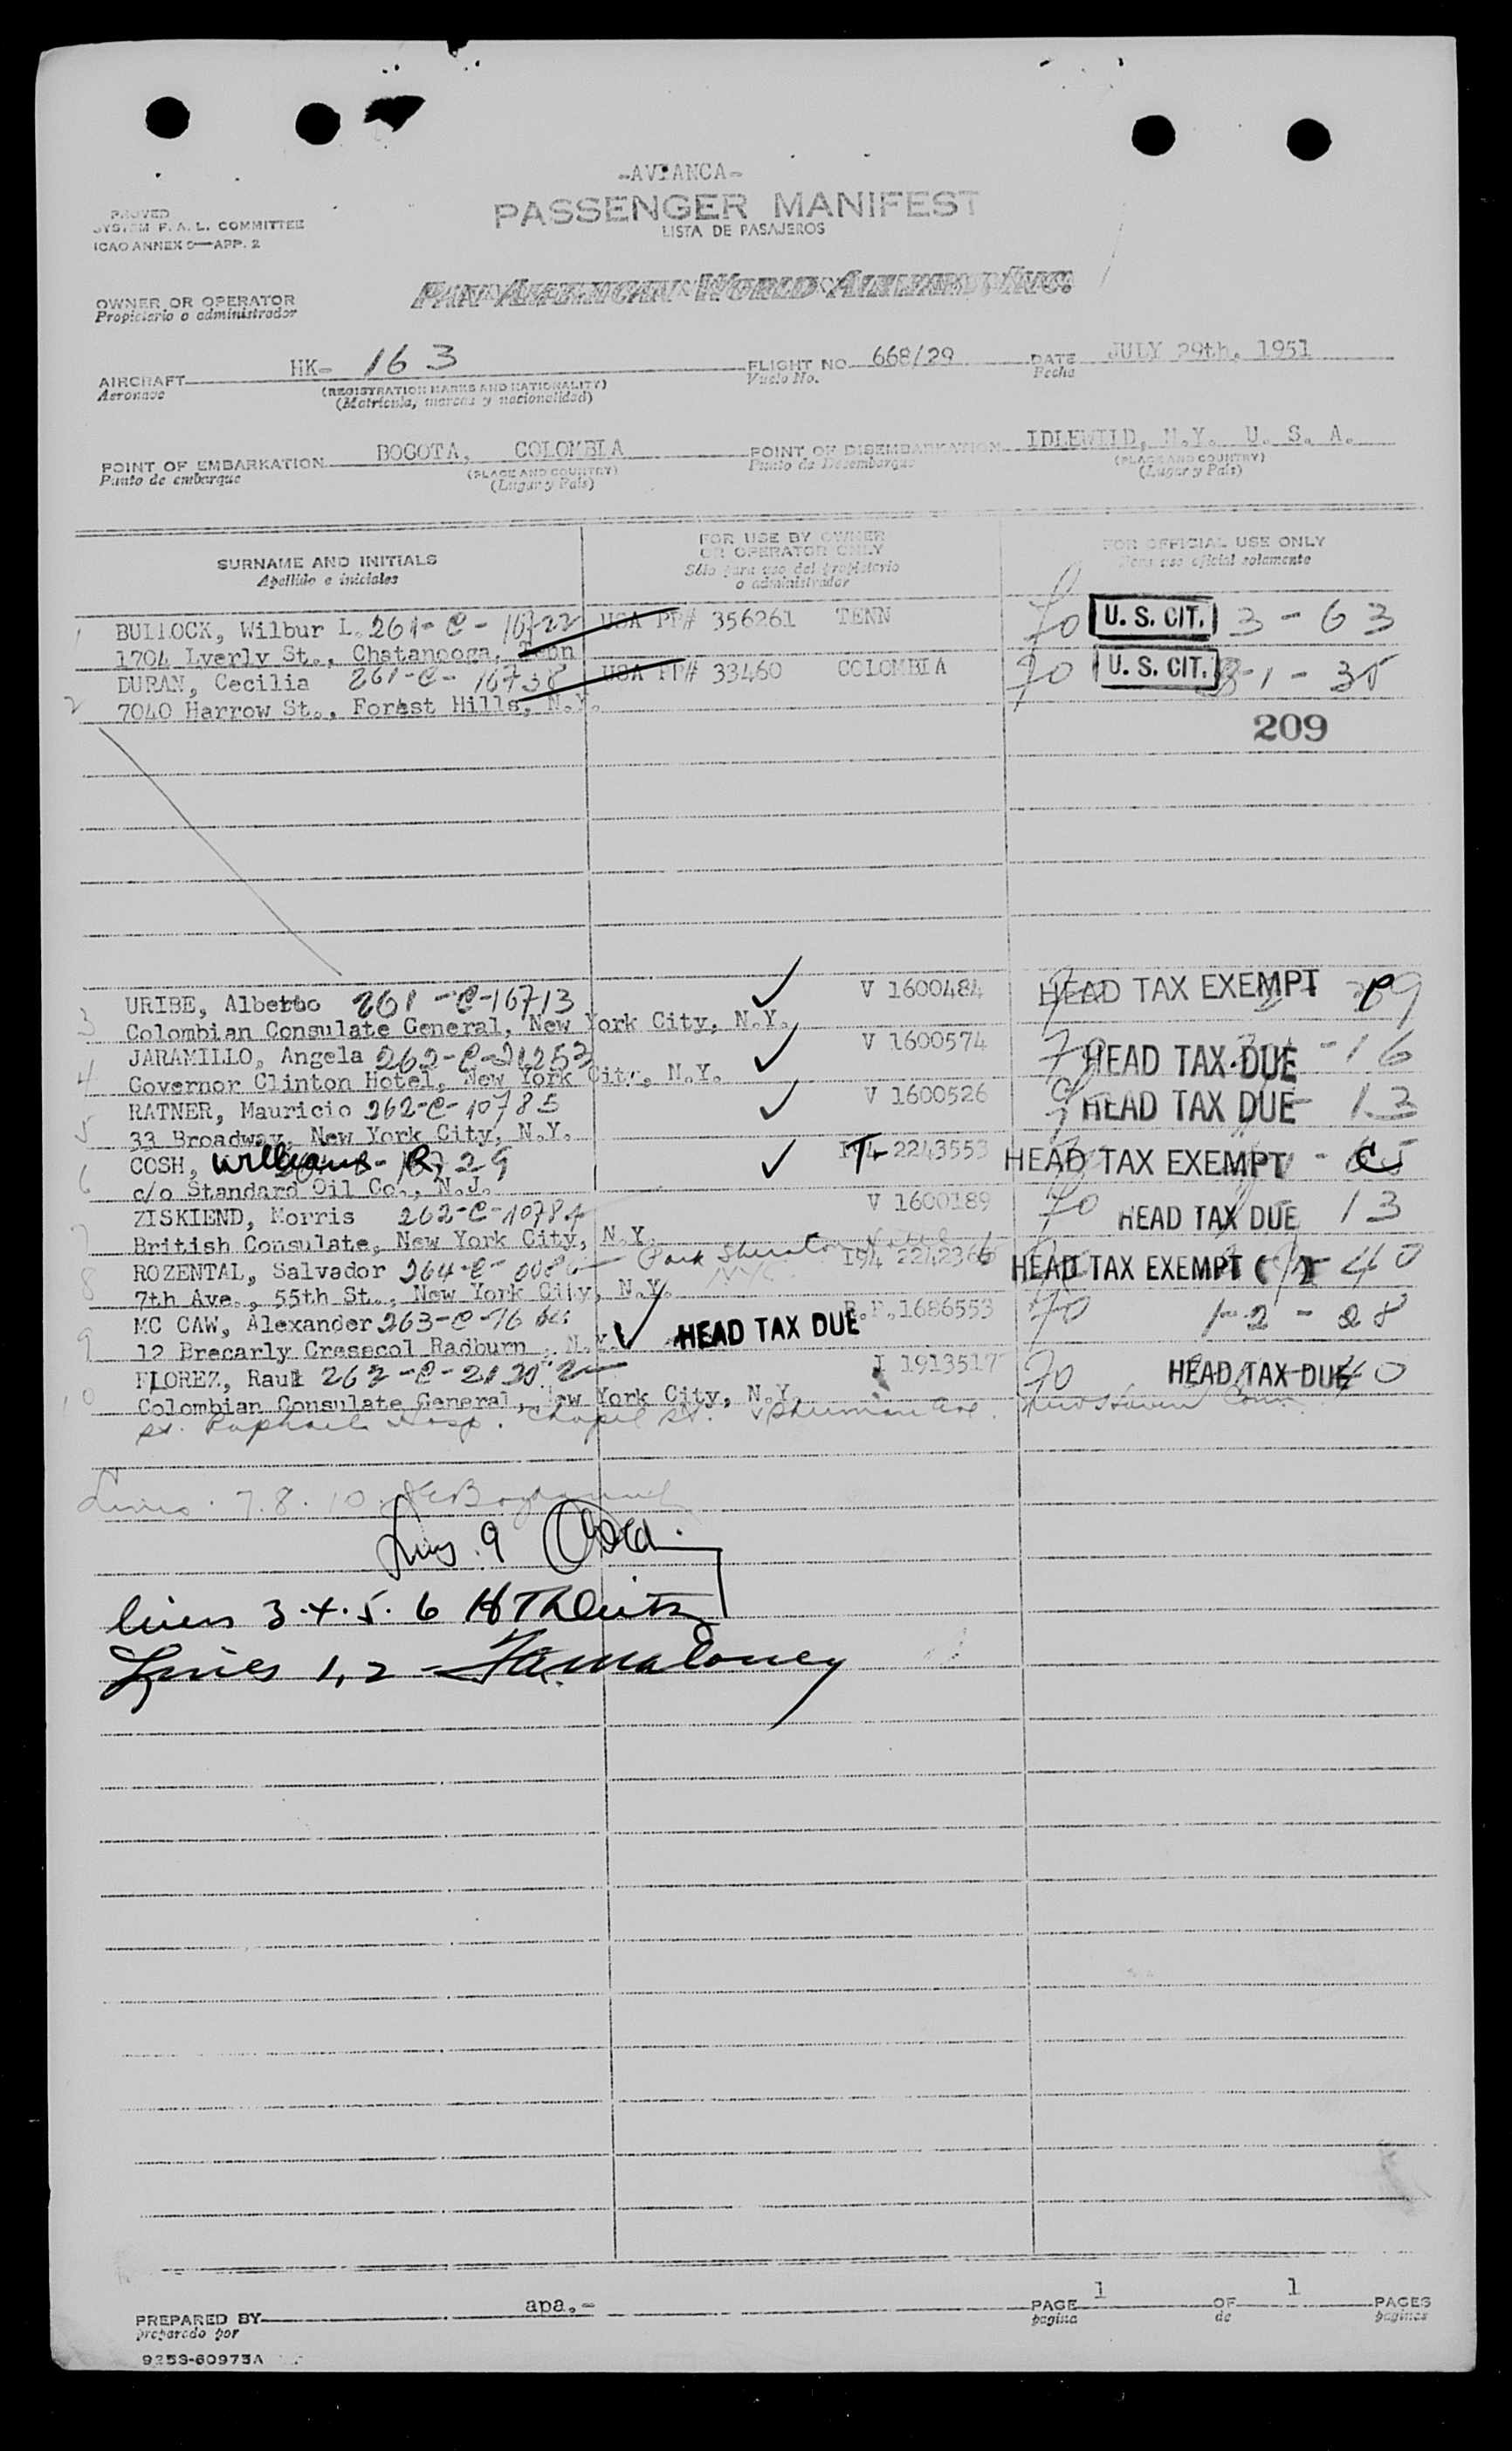 -AVIANCA-
PASSENGER MANIFEST
LISTA DE PASAJEROS
PROVED
SYSTEM F. A. L. COMMITTEE
ICAO ANNEX 9—APP. 2
PAN AMERICAN WORLD AIRWAYS, INC.
OWNER OR OPERATOR
Propietario o administrador
AIRCRAFT HK- 163 FLIGHT NO. 668/29 DATE JULY 29th, 1951
Aeronave (REGISTRATION MARKS AND NATIONALITY) Vuelo No. Fecha
(Matrícula, marcas y nacionalidad)
POINT OF EMBARKATION BOGOTA, COLOMBIA POINT OF DISEMBARKATION IDLEWILD, N.Y. U. S. A.
Punto de embarque (PLACE AND COUNTRY) Punto de Desembarque (PLACE AND COUNTRY)
(Lugar y País) (Lugar y País)
SURNAME AND INITIALS FOR USE BY OWNER OR OPERATOR ONLY FOR OFFICIAL USE ONLY
Apellido e iniciales Sólo para uso del propietario o administrador Para uso oficial solamente
1 BULLOCK, Wilbur L. 261-C-16722 USA PP# 356261 TENN 70 U. S. CIT. 3-63
1704 Lyerly St., Chatanooga, Tenn
DURAN, Cecilia 261-C-16738 USA PP# 33460 COLOMBIA 70 U. S. CIT. 1-35
2 7040 Harrow St., Forest Hills, N.Y.
209
3 URIBE, Alberto 261-C-16713 V 1600484 HEAD TAX EXEMPT
Colombian Consulate General, New York City, N.Y.
4 JARAMILLO, Angela 262-C-21253 V 1600574 70 HEAD TAX DUE -16
Governor Clinton Hotel, New York City, N.Y.
5 RATNER, Mauricio 262-C-10785 V 1600526 HEAD TAX DUE 13
33 Broadway, New York City, N.Y.
6 COSH, William R. 29 I94 2243553 HEAD TAX EXEMPT
c/o Standard Oil Co., N.J.
7 ZISKIEND, Morris 262-C-10784 V 1600189 70 HEAD TAX DUE 13
British Consulate, New York City, N.Y. Park Sheraton Hotel
8 ROZENTAL, Salvador 264-C- I94 2242366 HEAD TAX EXEMPT 40
7th Ave., 55th St., New York City, N.Y. NYC
9 MC CAW, Alexander 263-C-16 HEAD TAX DUE R.P. 1686553 70 1-2-28
12 Brecarly Cresscol Radburn, N.Y.
10 FLOREZ, Raul 262-C- I 1913517 70 HEAD TAX DUE 40
Colombian Consulate General, New York City, N.Y.
St. Raphael Hosp. Chapel St. Sherman Ave. New Haven Conn.
Lines 7.8.10
Lines 9
lines 3.4.5.6
Lines 1,2 - Maloney
PREPARED BY apa.- PAGE 1 OF 1 PAGES
preparado por página de páginas
9253-60973A